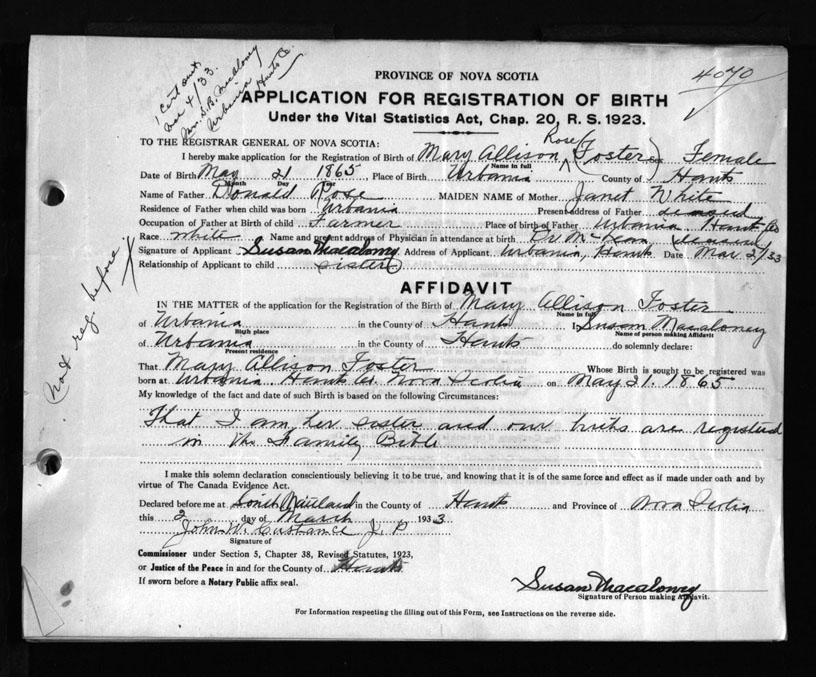 1 Cert out
4/33.
Mrs. S.B. Macaloney
Urbania Hants Co
4070
PROVINCE OF NOVA SCOTIA
APPLICATION FOR REGISTRATION OF BIRTH
Under the Vital Statistics Act, Chap. 20, R. S. 1923.
TO THE REGISTRAR GENERAL OF NOVA SCOTIA:
Rose
I hereby make application for the Registration of Birth of Mary Allison (Foster) Sex Female
Name in full
Date of Birth May 21 1865 Place of Birth Urbania County of Hants
Month Day Year
Name of Father Donald Rose MAIDEN NAME of Mother Janet White
Residence of Father when child was born Urbania Present address of Father
Occupation of Father at Birth of child Farmer Place of birth of Father Urbania, Hants Co
Race white Name and present address of Physician in attendance at birth Dr McLean
Signature of Applicant Susan Macaloney Address of Applicant Urbania, Hants Date Mar 2/33
Relationship of Applicant to child sister
(not reg. before.)
AFFIDAVIT
IN THE MATTER of the application for the Registration of the Birth of Mary Allison Foster
Name in full
of Urbania in the County of Hants I Susan Macaloney
Birth place Name of person making Affidavit
of Urbania in the County of Hants do solemnly declare:
Present residence
That Mary Allison Foster Whose Birth is sought to be registered was
born at Urbania Hants Co. Nova Scotia on May 21. 1865
My knowledge of the fact and date of such Birth is based on the following Circumstances:
That I am her sister and our births are registerd
in the Family Bible
I make this solemn declaration conscientiously believing it to be true, and knowing that it is of the same force and effect as if made under oath and by
virtue of The Canada Evidence Act.
Declared before me at South Maitland in the County of Hants and Province of Nova Scotia
this 2 day of March 1933
John W. Custance J. P.
Signature of
Commissioner under Section 5, Chapter 38, Revised Statutes, 1923,
or Justice of the Peace in and for the County of Hants
If sworn before a Notary Public affix seal.
Susan Macaloney
Signature of Person making Affidavit.
For Information respecting the filling out of this Form, see Instructions on the reverse side.